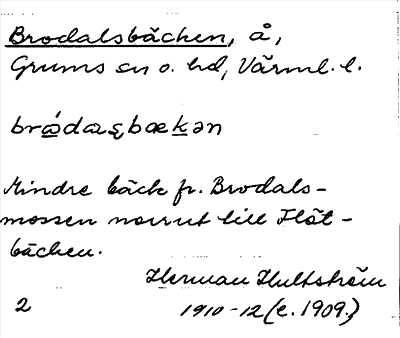 Brodalsbäcken, å,
Grums sn o. hd, Värml. l.
brǻdaʂbækən
Mindre bäck fr. Brodals-
mossen norrut till Flöt-
bäcken.
Herman Hultström
1910-12 (e. 1909.)
2